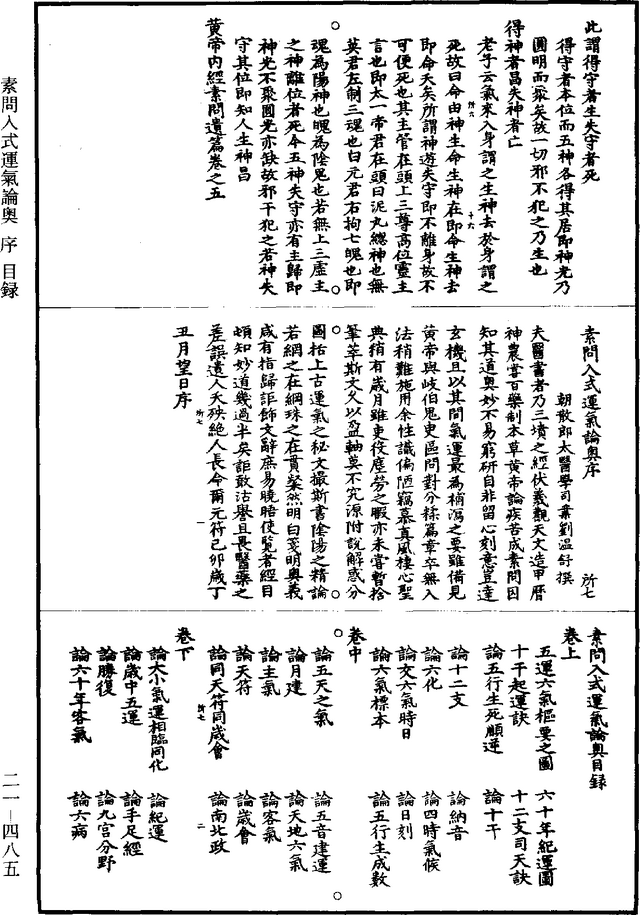 素問入式運氣論奧 序 目録
二一—四八五
此謂得守者生失守者死
得守者本位而五神各得其居即神光乃
圓明而聚矣故一切邪不犯之乃生也
得神者昌失神者亡
老子云氣來入身謂之生神去於身謂之
死故曰命由神生命生神在即命生神去
即命夭矣所謂神遊失守即不離身故不
可便死也其主管在頭上三尊高位靈主
言也即太一帝君在頭曰泥丸總神也無
英君左制三魂也白元君右拘七魄也即
所六
十六
魂為陽神也魄為陰鬼也若無上三虛主
之神離位者死今五神失守亦有主歸即
神光不聚圓光亦缺故邪干犯之若神失
守其位即知人生神昌
黄帝内經素問遺篇卷之五
素問入式運氣論奧序
所七
朝散郎太醫學司業劉溫舒撰
夫醫書者乃三墳之經伏羲觀天文造甲曆
神農嘗百藥制本草黄帝論疾苦成素問因
知其道奧妙不易窮研自非留心刻意豈達
玄機且以其間氣運最為補瀉之要雖備見
黄帝與岐伯鬼臾區問對分糅篇章卒無入
法稍難施用余性識偏陋竊慕真風棲心聖
典稍有歲月雖吏役塵勞之暇亦未嘗暫捨
筆萃斯文久以盈軸莫不究源附說解惑分
圖括上古運氣之秘文撮斯書陰陽之精論
若網之在綱珠之在貫粲然明白箋明奥義
咸有指歸詎飾文辭庶易曉晤使覽者經目
頓知妙道幾過半矣詎敢沽譽且畏醫藥之
差誤遺人夭殃絶人長命爾元符己卯歲丁
丑月望日序
所七
一
素問入式運氣論奧目録
卷上
五運六氣樞要之圖 六十年紀運圖
十干起運訣 十二支司天訣
論五行生死順逆 論十干
論十二支 論納音
論六化 論四時氣候
論交六氣時日 論日刻
論六氣標本 論五行生成數
卷中
論五天之氣 論五音建運
論月建 論天地六氣
論主氣 論客氣
論天符 論歲會
論同天符同歲會 論南北政
所七
二
卷下
論大小氣運相臨同化 論紀運
論歲中五運 論手足經
論勝復 論九宮分野
論六十年客氣 論六病